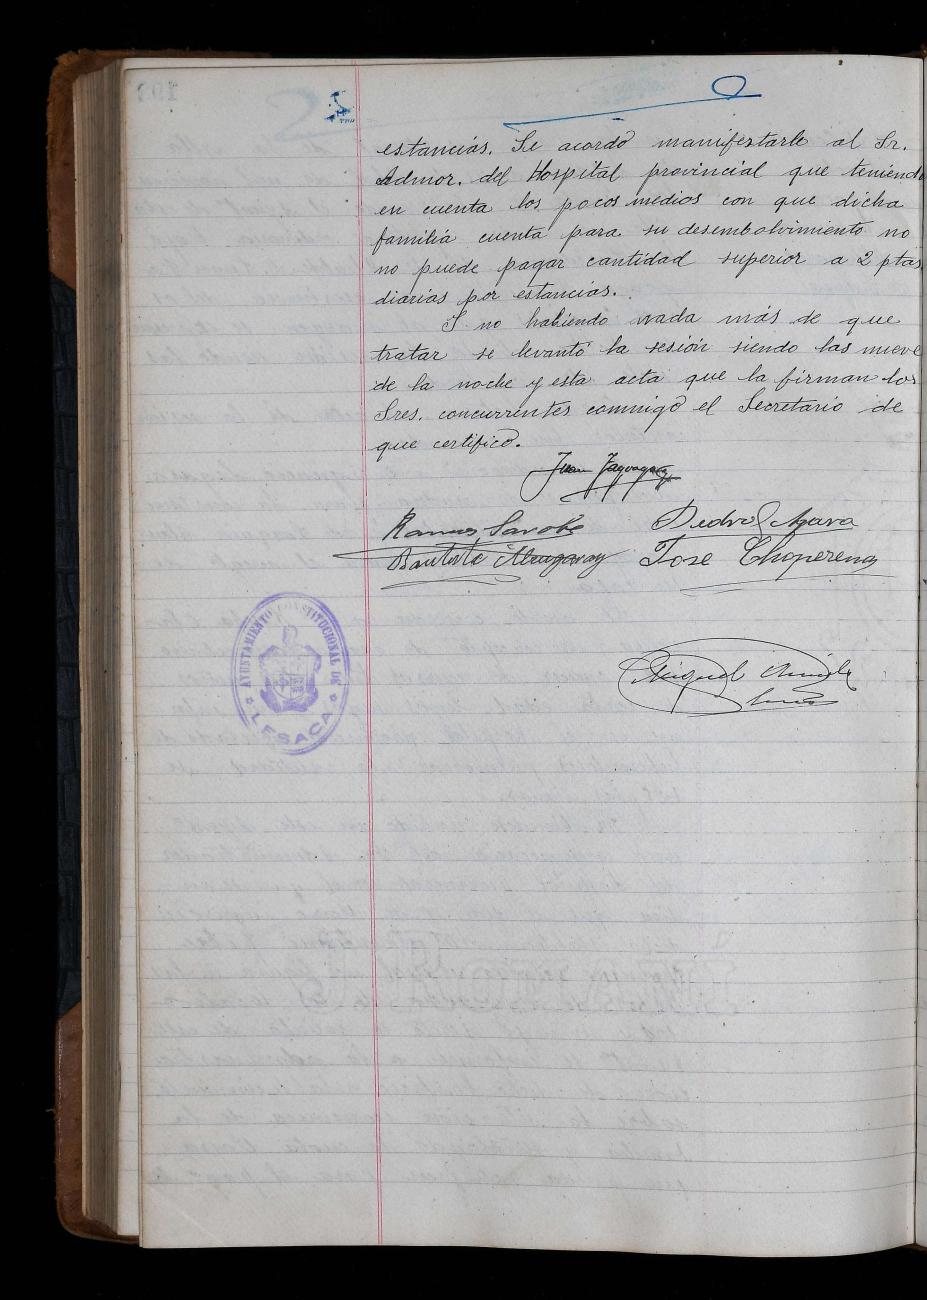 estancias. Se acordó manifestarle al Sr.
Admor. del Hospital provincial que teniendo
en cuenta los pocos medios con que dicha
familia cuenta para su desembolvimiento no
no puede pagar cantidad superior a 2 ptas
diarias por estancias.
Y no habiendo nada más de que
tratar se levantó la sesión siendo las nueve
de la noche y esta acta que la firman los
Sres. concurrentes conmigo el Secretario de
que certifico.
Juan
Pedro
Bautista
Jose Choperena
Miguel
AYUNTAMIENTO CONSTITUCIONAL DE
LESACA